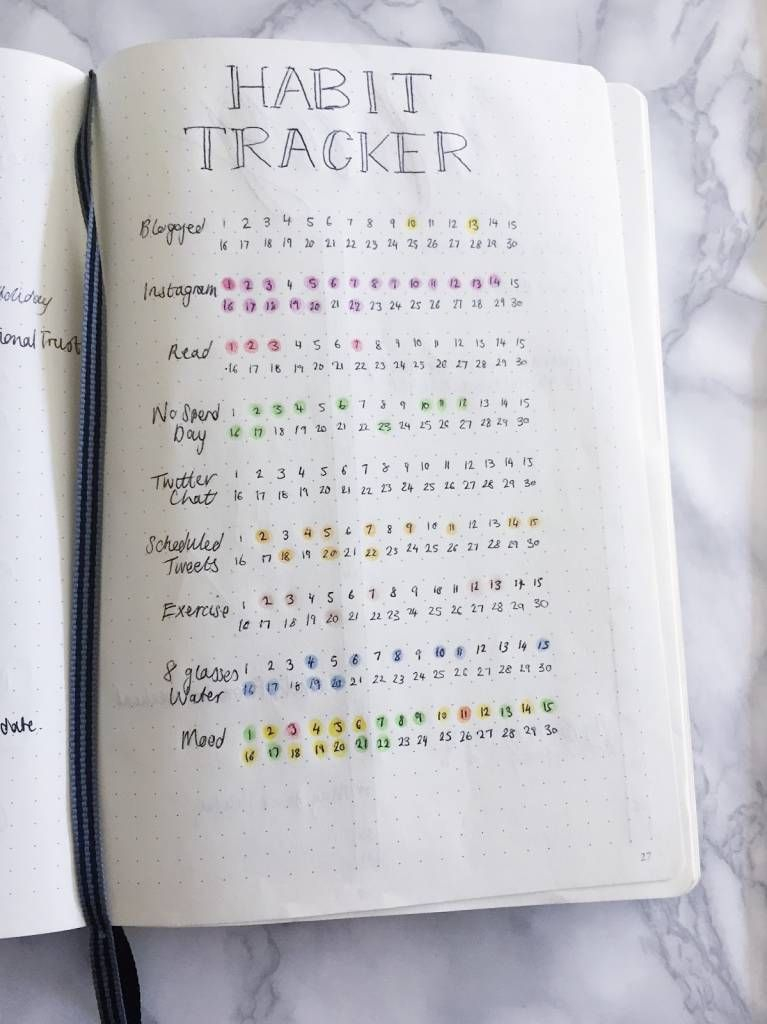 HABIT
TRACKER
Blogged 1 2 3 4 5 6 7 8 9 10 11 12 13 14 15
16 17 18 19 20 21 22 23 24 25 26 27 28 29 30
Instagram 1 2 3 4 5 6 7 8 9 10 11 12 13 14 15
16 17 18 19 20 21 22 23 24 25 26 27 28 29 30
Holiday
ional Trust
Read 1 2 3 4 5 6 7 8 9 10 11 12 13 14 15
16 17 18 19 20 21 22 23 24 25 26 27 28 29 30
No Spend 1 2 3 4 5 6 7 8 9 10 11 12 13 14 15
Day 16 17 18 19 20 21 22 23 24 25 26 27 28 29 30
Twitter 1 2 3 4 5 6 7 8 9 10 11 12 13 14 15
Chat 16 17 18 19 20 21 22 23 24 25 26 27 28 29 30
Scheduled 1 2 3 4 5 6 7 8 9 10 11 12 13 14 15
Tweets 16 17 18 19 20 21 22 23 24 25 26 27 28 29 30
Exercise 1 2 3 4 5 6 7 8 9 10 11 12 13 14 15
16 17 18 19 20 21 22 23 24 25 26 27 28 29 30
8 glasses 1 2 3 4 5 6 7 8 9 10 11 12 13 14 15
Water 16 17 18 19 20 21 22 23 24 25 26 27 28 29 30
Mood 1 2 3 4 5 6 7 8 9 10 11 12 13 14 15
16 17 18 19 20 21 22 23 24 25 26 27 28 29 30
27